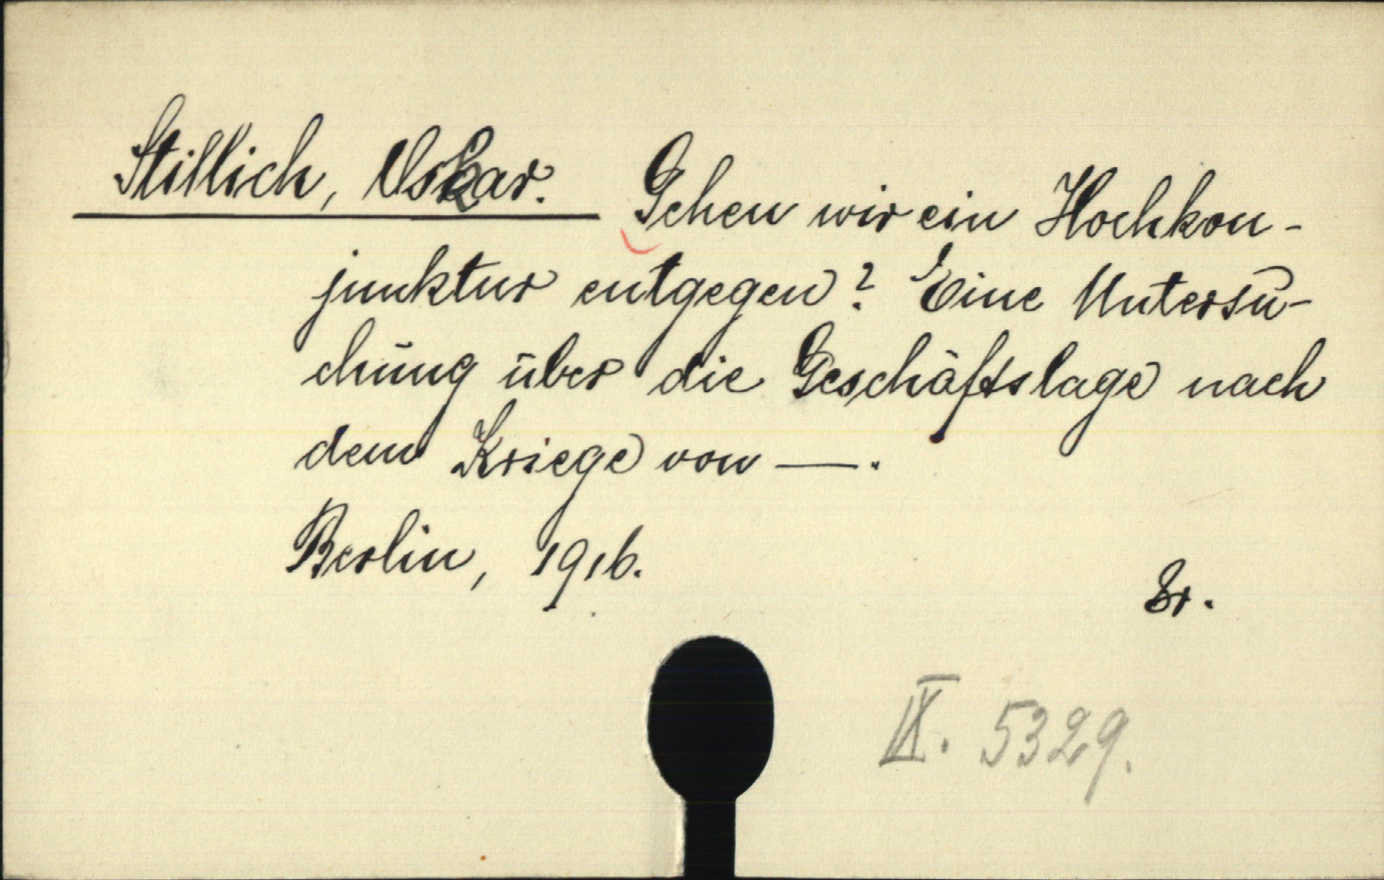 Stillich, Oskar. Gehen wir ein Hochkon-
junktur entgegen? Eine Untersu-
chung über die Geschäftslage nach
dem Kriege von —.
Berlin, 1916.
IX. 5329.